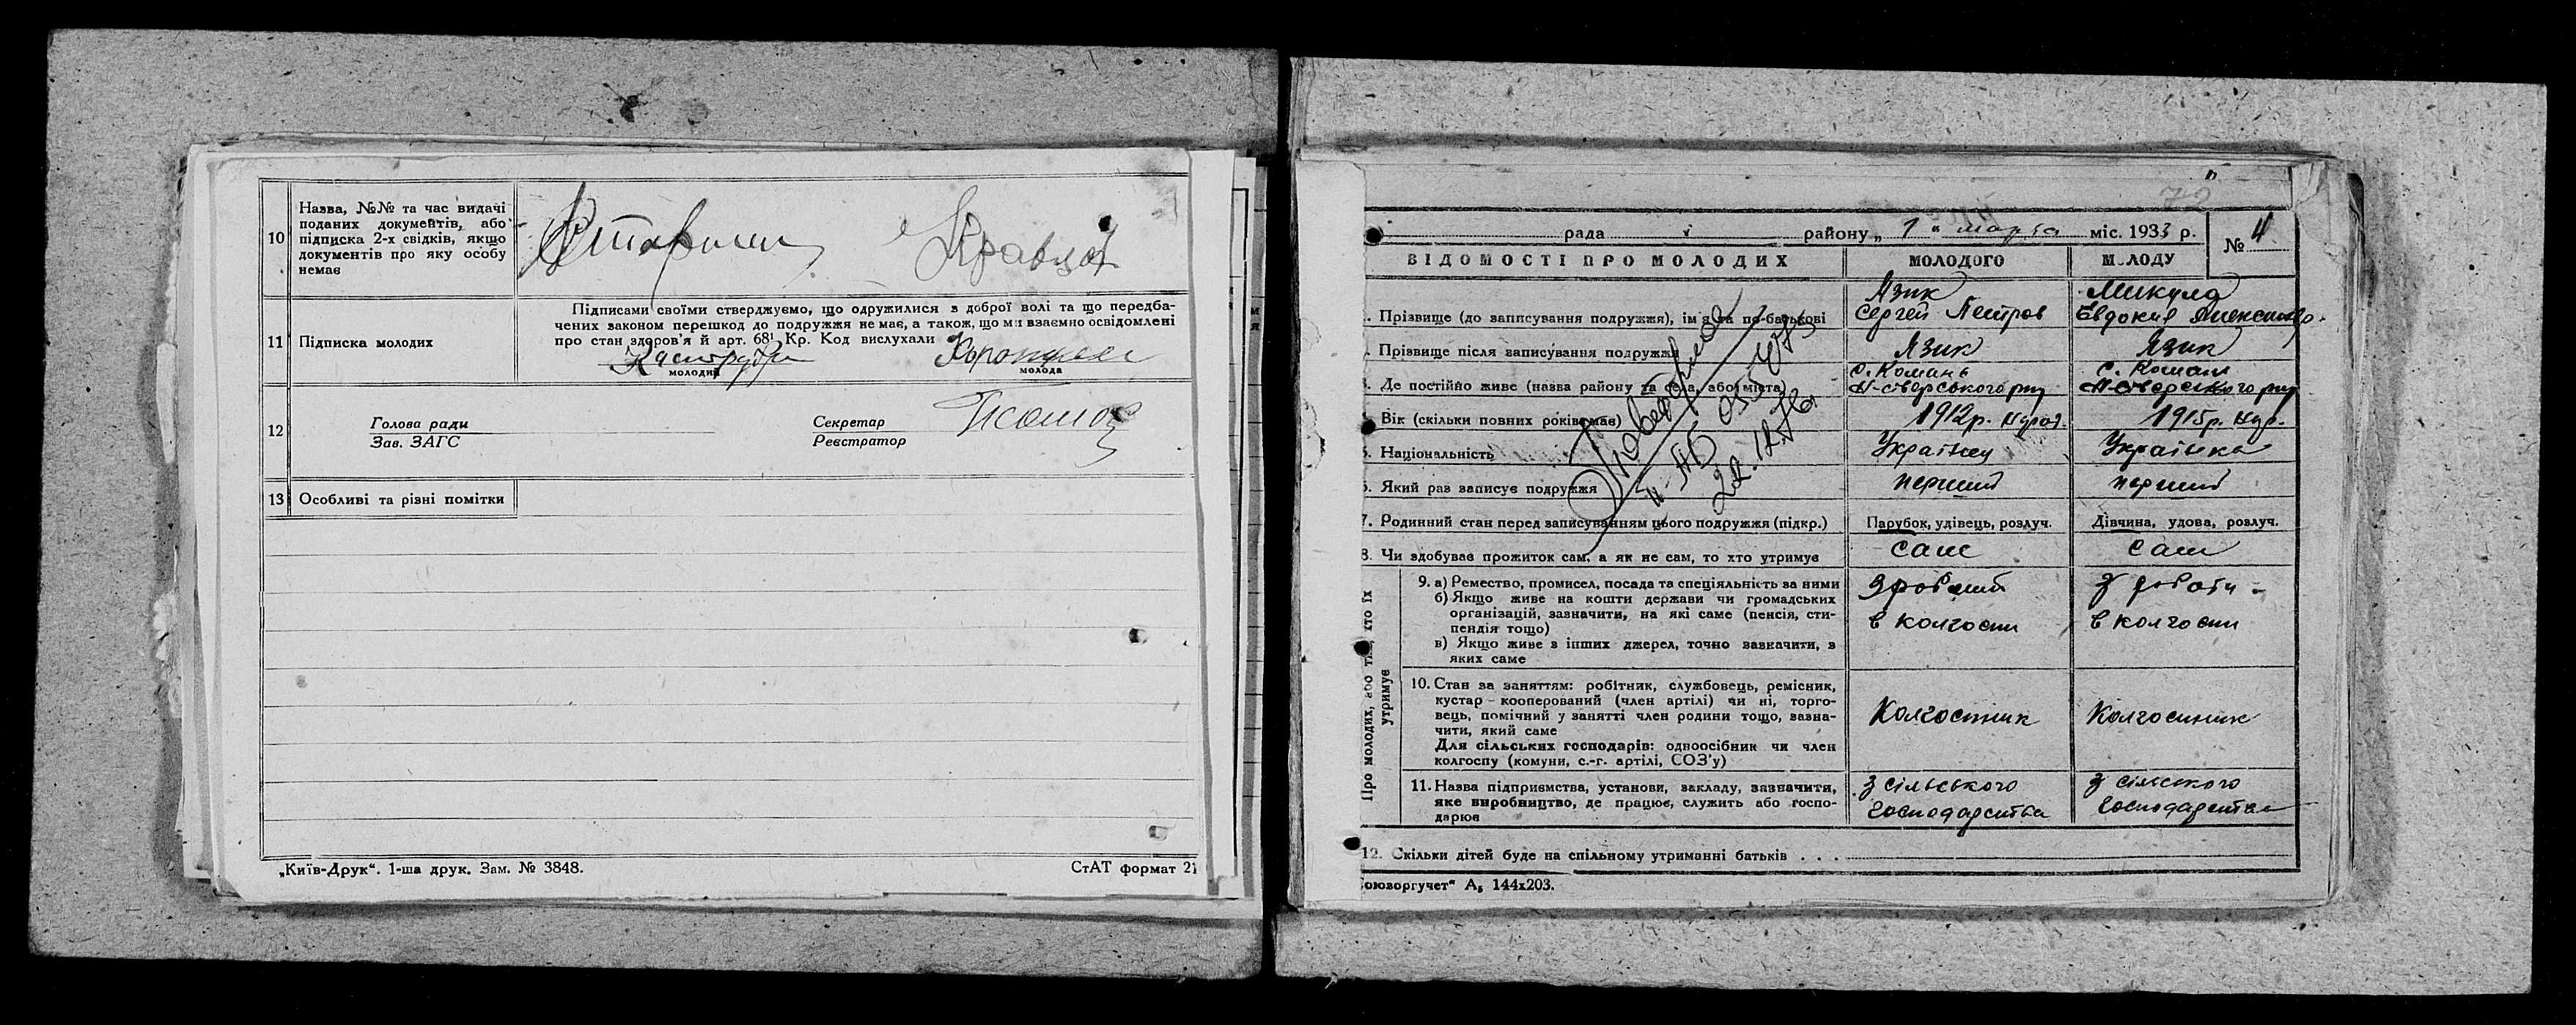 10
Назва, №№ та час видачі
поданих документів, або
підписка 2-х свідків, якщо
документів про яку особу
немає
Кравцов
11
Підписка молодих
Підписами своїми стверджуємо, що одружилися з доброї волі та що передба-
чених законом перешкод до подружжя немає, а також, що ми взаємно освідомлені
про стан здоров'я й арт. 68¹ Кр. Код вислухали
молодий
молода
12
Голова ради
Зав. ЗАГС
Секретар
Реєстратор
13
Особливі та різні помітки
„Київ-Друк“. 1-ша друк. Зам. № 3848.
СтАТ формат 21
72
рада
району „ 1 “ марта міс. 1933 р.
№ 4
ВІДОМОСТІ ПРО МОЛОДИХ
МОЛОДОГО
МОЛОДУ
. Прізвище (до записування подружжя), ім'я та по-батькові
Язик
Сергей Петров
Микула
Евдокия
. Прізвище після записування подружжя
Язик
Язик
. Де постійно живе (назва району та села, або міста)
с. Комань
Н-сіверського р-ну
с. Комань
Н-сіверського р-ну
Вік (скільки повних років має)
1912р.
1915р.
5. Національність
Українец
Українка
6. Який раз записує подружжя
перший
перший
7. Родинний стан перед записуванням цього подружжя (підкр.)
Парубок, удівець, розлуч.
Дівчина, удова, розлуч.
8. Чи здобуває прожиток сам, а як не сам, то хто утримує
сам
сам
22.12.76
Про молодих, або тих, хто їх
утримує
9. а) Ремество, промисел, посада та спеціяльність за ними
б) Якщо живе на кошти держави чи громадських
організацій, зазначити, на які саме (пенсія, сти-
пендія тощо)
в) Якщо живе з інших джерел, точно зазначити, з
яких саме
в колгоспи
в колгоспи
10. Стан за заняттям: робітник, службовець, ремісник,
кустар - кооперований (член артілі) чи ні, торго-
вець, помічний у занятті член родини тощо, зазна-
чити, який саме
Для сільських господарів: одноосібник чи член
колгоспу (комуни, с.-г. артілі, СОЗ'у)
Колгоспник
Колгоспник
11. Назва підприємства, установи, закладу, зазначити,
яке виробництво, де працює, служить або госпо-
дарює
з сільського
господарства
з сільского
господарства
12. Скільки дітей буде на спільному утриманні батьків . . .
оюзоргучет“ А₅ 144х203.